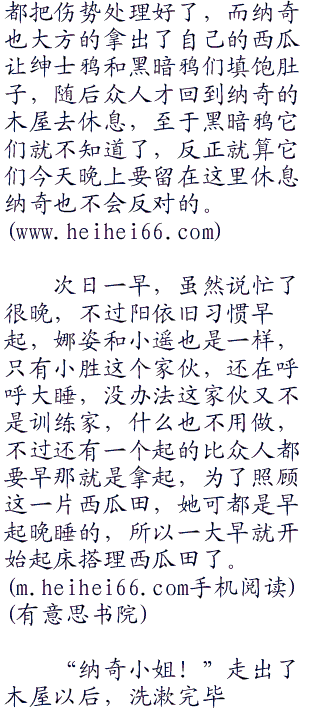 都把伤势处理好了，而纳奇
也大方的拿出了自己的西瓜
让绅士鸦和黑暗鸦们填饱肚
子，随后众人才回到纳奇的
木屋去休息，至于黑暗鸦它
们就不知道了，反正就算它
们今天晚上要留在这里休息
纳奇也不会反对的。
(www.heihei66.com)
次日一早，虽然说忙了
很晚，不过阳依旧习惯早
起，娜姿和小遥也是一样，
只有小胜这个家伙，还在呼
呼大睡，没办法这家伙又不
是训练家，什么也不用做，
不过还有一个起的比众人都
要早那就是拿起，为了照顾
这一片西瓜田，她可都是早
起晚睡的，所以一大早就开
始起床搭理西瓜田了。
(m.heihei66.com手机阅读)
(有意思书院)
“纳奇小姐！”走出了
木屋以后，洗漱完毕